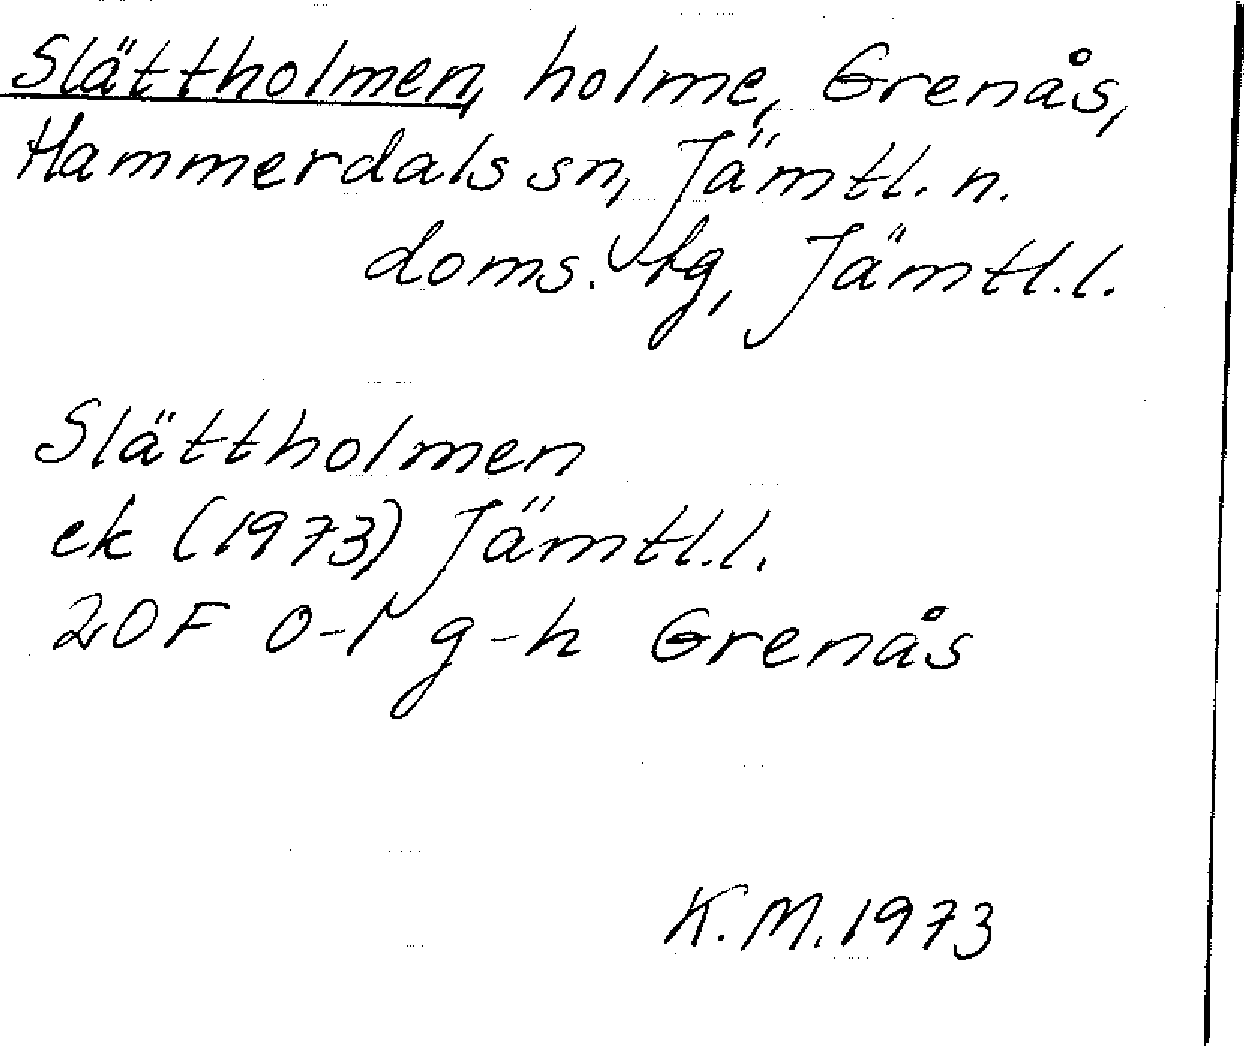 Slättholmen, holme, Grenås,
Hammerdals sn, Jämtl. n.
doms. tg, Jämtl.l.
Slättholmen
ek (1973) Jämtl.l.
20F 0-1 g-h Grenås
K.M. 1973